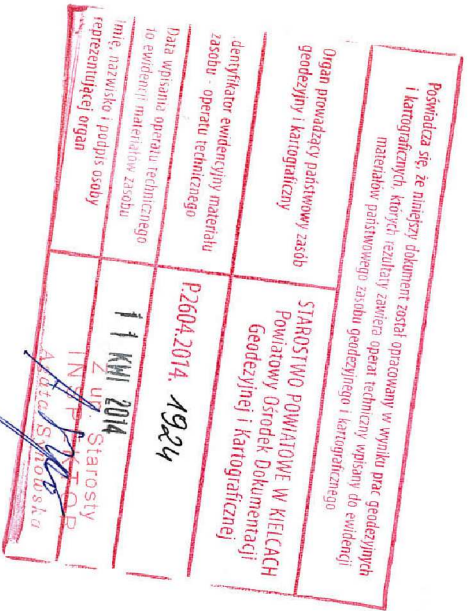 Poświadcza się, że niniejszy dokument został opracowany w wyniku prac geodezyjnych
i kartograficznych, których rezultaty zawiera operat techniczny wpisany do ewidencji
materiałów państwowego zasobu geodezyjnego i kartograficznego
Organ prowadzący państwowy zasób
geodezyjny i kartograficzny
STAROSTWO POWIATOWE W KIELCACH
Powiatowy Ośrodek Dokumentacji
Geodezyjnej i Kartograficznej
dentyfikator ewidencyjny materiału
zasobu - operatu technicznego
P.2604.2014. 1924
Data wpisania operatu technicznego
to ewidencji materiałów zasobu
11 KWI 2014
Imię, nazwisko i podpis osoby
reprezentującej organ
Z up. Starosty
INSPEKTOR
Agata